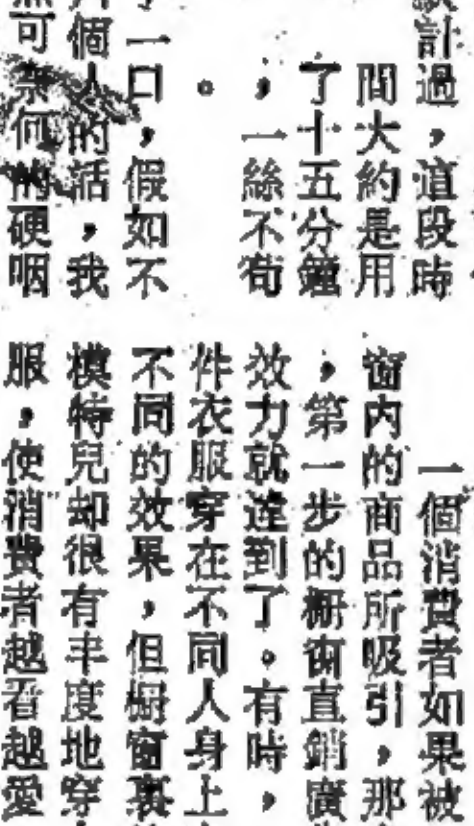 計過，這段時
間大約是用
了十五分鐘
，一絲不苟
。
一口，假如不
個人的話，我
可奈何的硬咽
一個消費者如果被
窗內的商品所吸引，那
，第一步的橱窗直銷廣
效力就達到了。有時，
件衣服穿在不同人身上
不同的效果，但橱窗裏
模特兒却很有丰度地穿
服，使消費者越看越愛